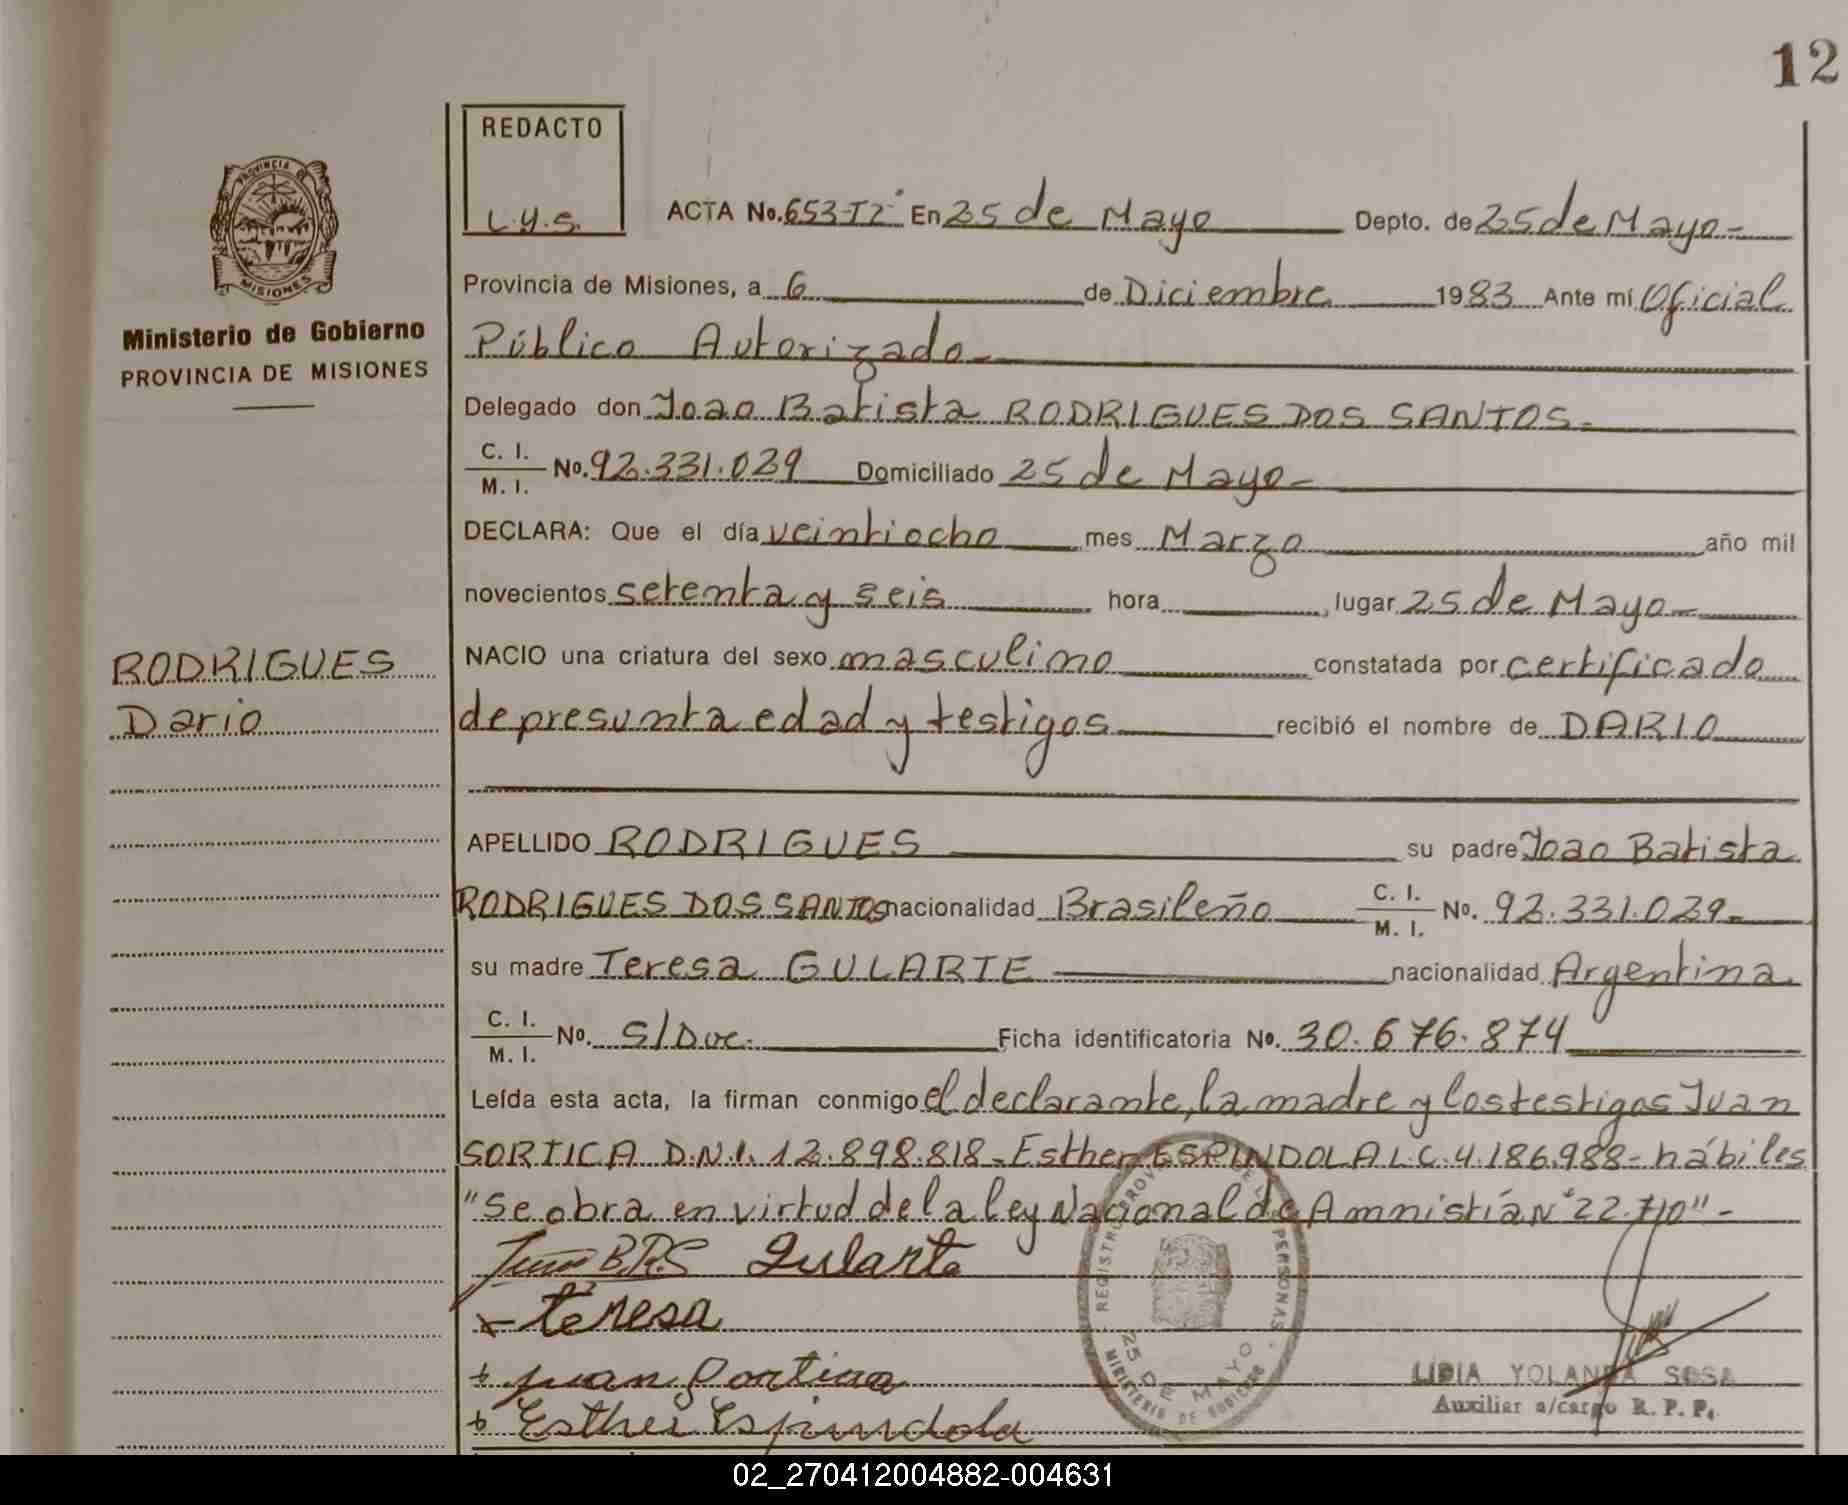 12
REDACTO
L.y.s.
ACTA No. 653-T2° En 25 de Mayo Depto. de 25 de Mayo-
Provincia de Misiones, a 6 de Diciembre 1983 Ante mí Oficial
Público Autorizado-
Delegado don Joao Batista RODRIGUES DOS SANTOS-
C. I.
M. I. No. 92.331.029 Domiciliado 25 de Mayo-
DECLARA: Que el día veintiocho mes Marzo año mil
novecientos setenta y seis hora , lugar 25 de Mayo-
NACIO una criatura del sexo masculino constatada por certificado
de presunta edad y testigos recibió el nombre de DARIO
APELLIDO RODRIGUES su padre Joao Batista
RODRIGUES DOS SANTOS nacionalidad Brasileño C. I.
M. I. No. 92.331.029-
su madre Teresa GULARTE nacionalidad Argentina
C. I.
M. I. No. S/Doc. Ficha identificatoria No. 30.676.874
Leída esta acta, la firman conmigo el declarante, la madre y los testigos Juan
SORTICA D.N.I. 12.898.818-Esther ESPINDOLA L.C. 4.186.988- hábiles
"Se obra en virtud de la ley Nacional de Amnistía N° 22.710"-
B.R.S Gularte
teresa
juan Sortica
Esther Espindola
PROVINCIA DE
MISIONES
Ministerio de Gobierno
PROVINCIA DE MISIONES
RODRIGUES
Dario
REGISTRO PROV DE LAS PERSONAS
25 DE MAYO
MINISTERIO DE GOBIERNO
LIDIA YOLANDA SOSA
Auxiliar a/cargo R. P. P.
02_270412004882-004631